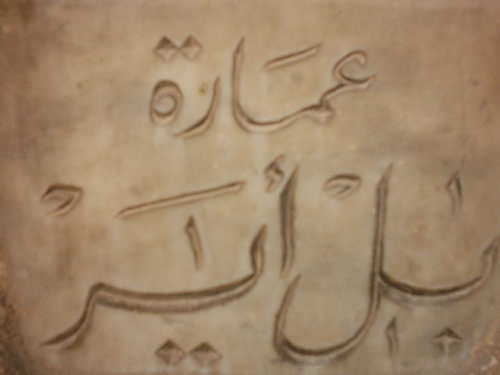 عمارة
بل أير